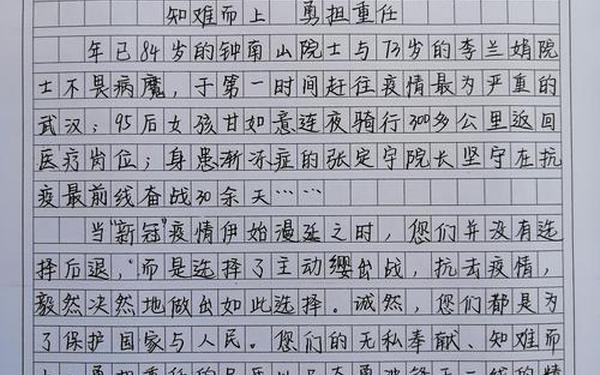 知难而上 勇担重任
年已84岁的钟南山院士与73岁的李兰娟院
士不畏病魔，于第一时间赶往疫情最为严重的
武汉；95后女孩甘如意连夜骑行300多公里返回
医疗岗位；身患渐冻症的张定宇院长坚守在抗
疫最前线奋战30余天……
当"新冠"疫情伊始漫延之时，您们并没有选
择后退，而是选择了主动缨出战，抗击疫情，
毅然决然地做出如此选择。诚然，您们都是为
了保护国家与人民。您们的无私奉献、知难而